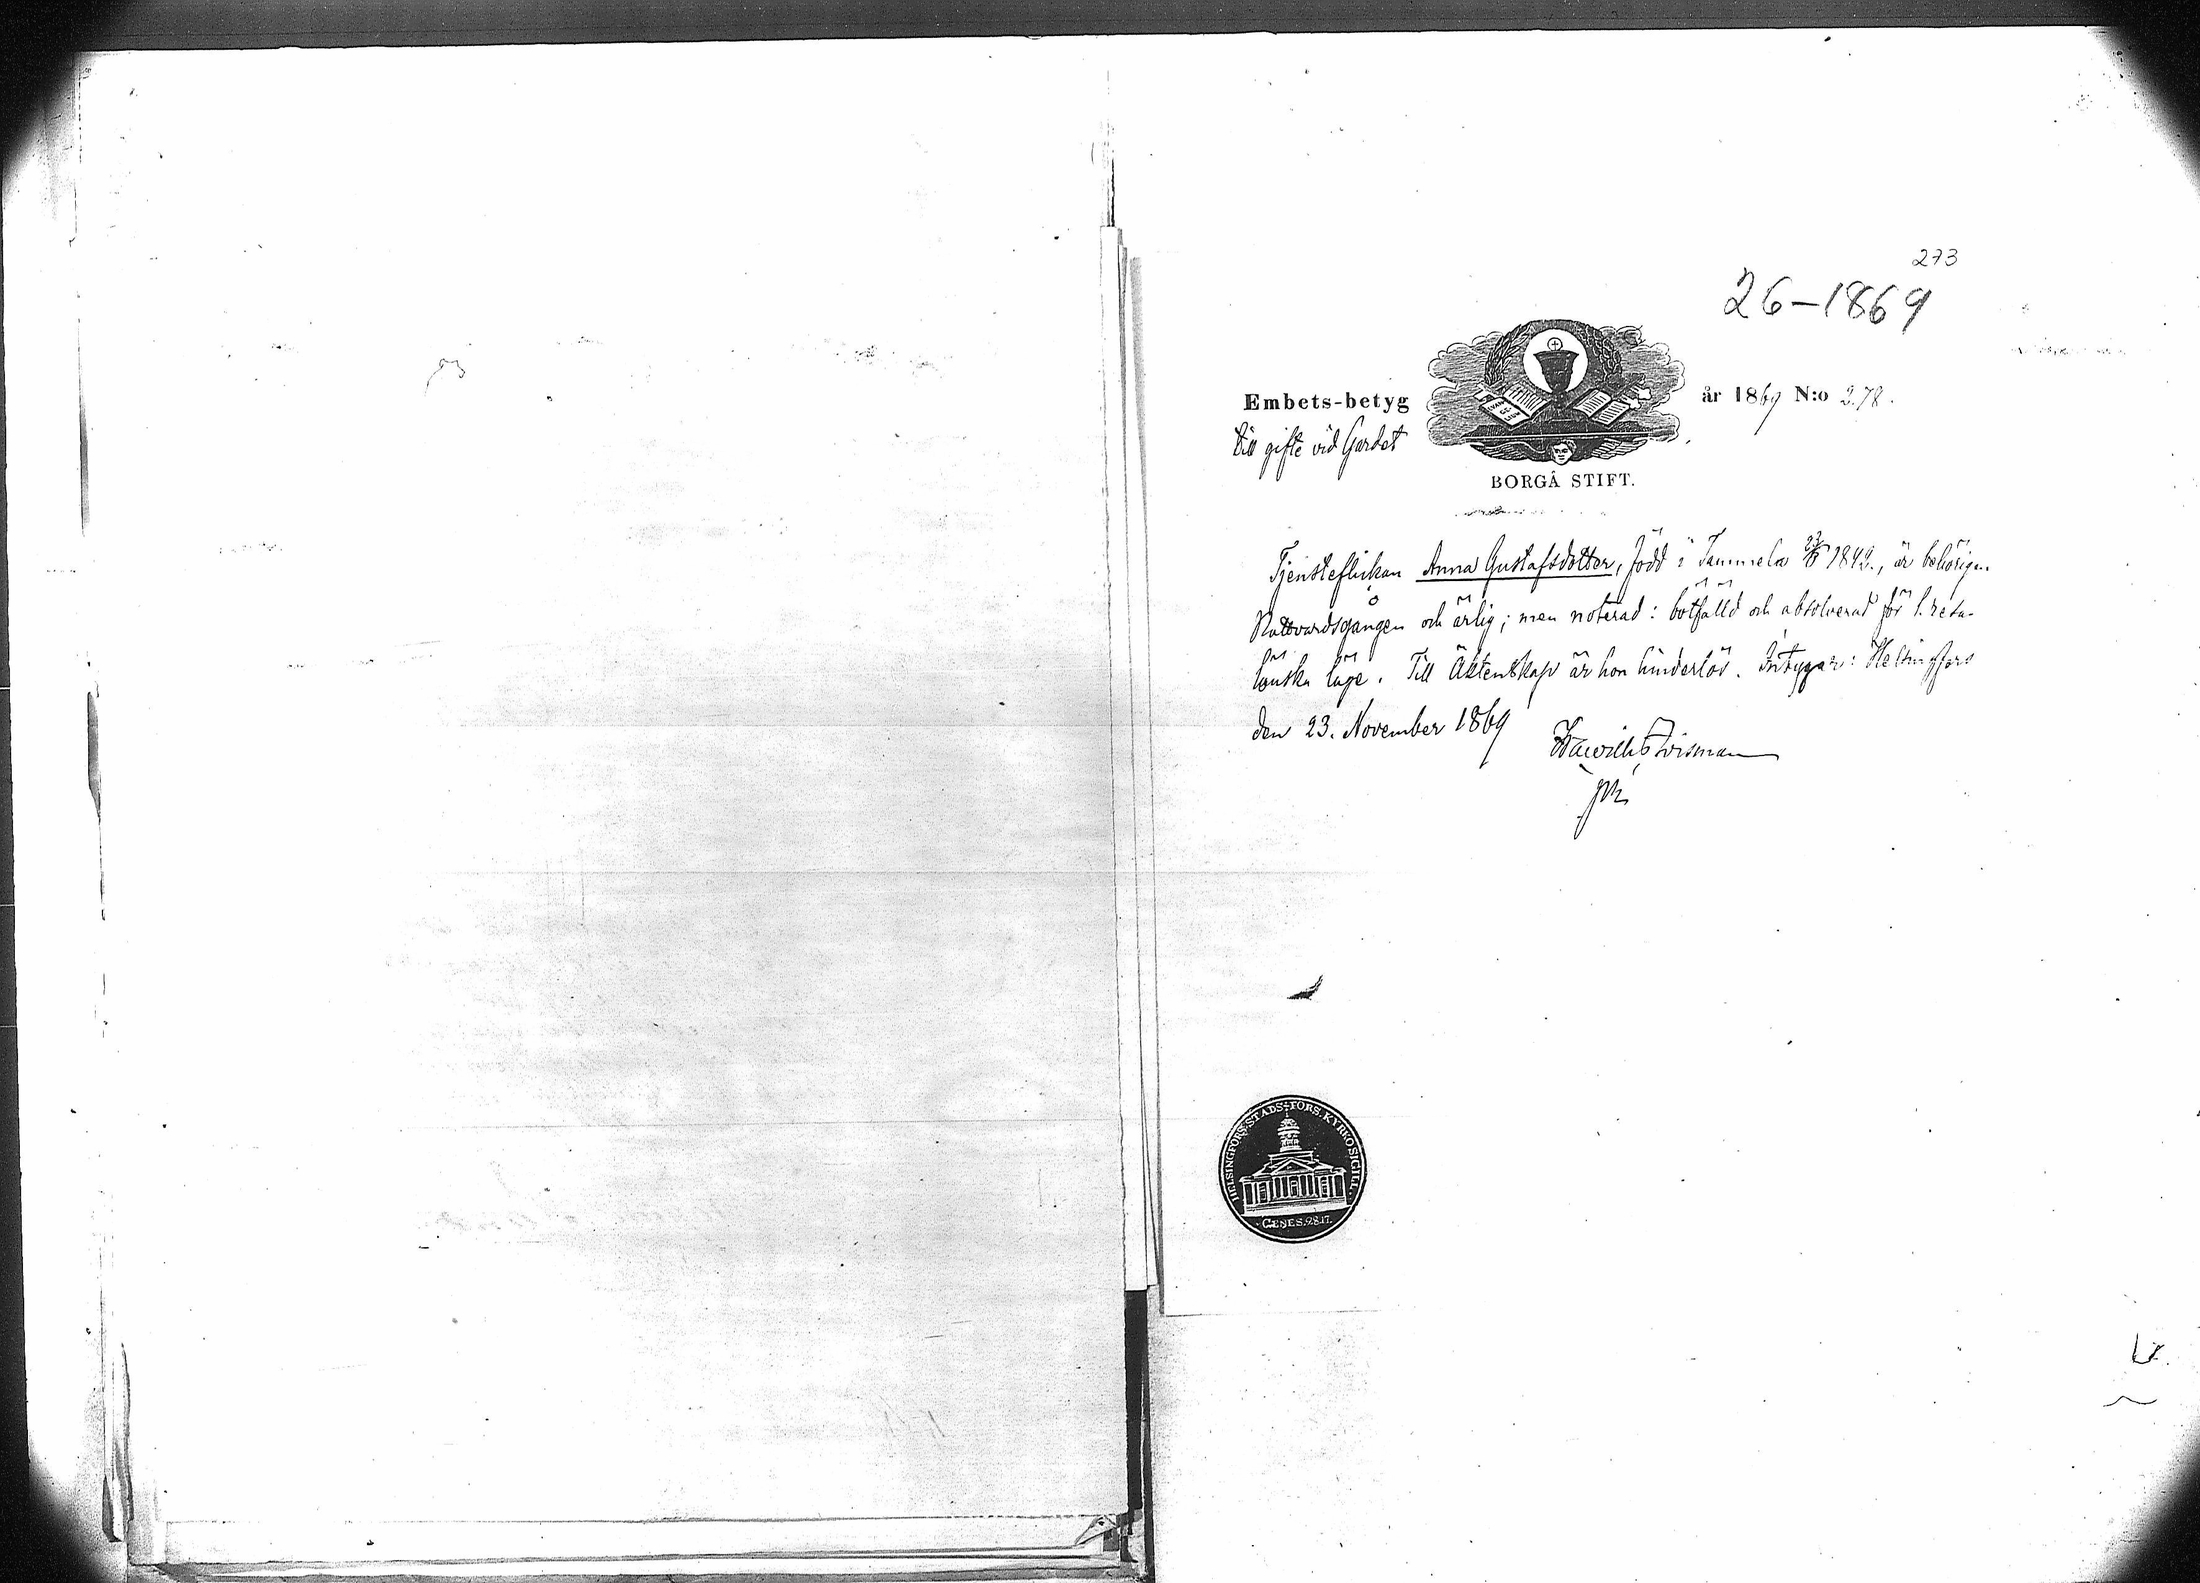 273
26-1869
Embets-betyg år 1869 N:o 278.
Till gifte vid Gardet
EVAN
GE-
LIUM
BORGÅ STIFT.
Tjensteflickan Anna Gustafsdotter, född i Tammela 1842., är behörigen
Nattvardsgången och ärlig; men noterad: botfälld och absolverad för 1. resa
lönska läge. Till Äktenskap är hon hinderlös. Intygar: Helsingfors
den 23. November 1869
HELSINGFORS STADS FÖRS. KYRKOSIGILL.
GENES. 28.17.